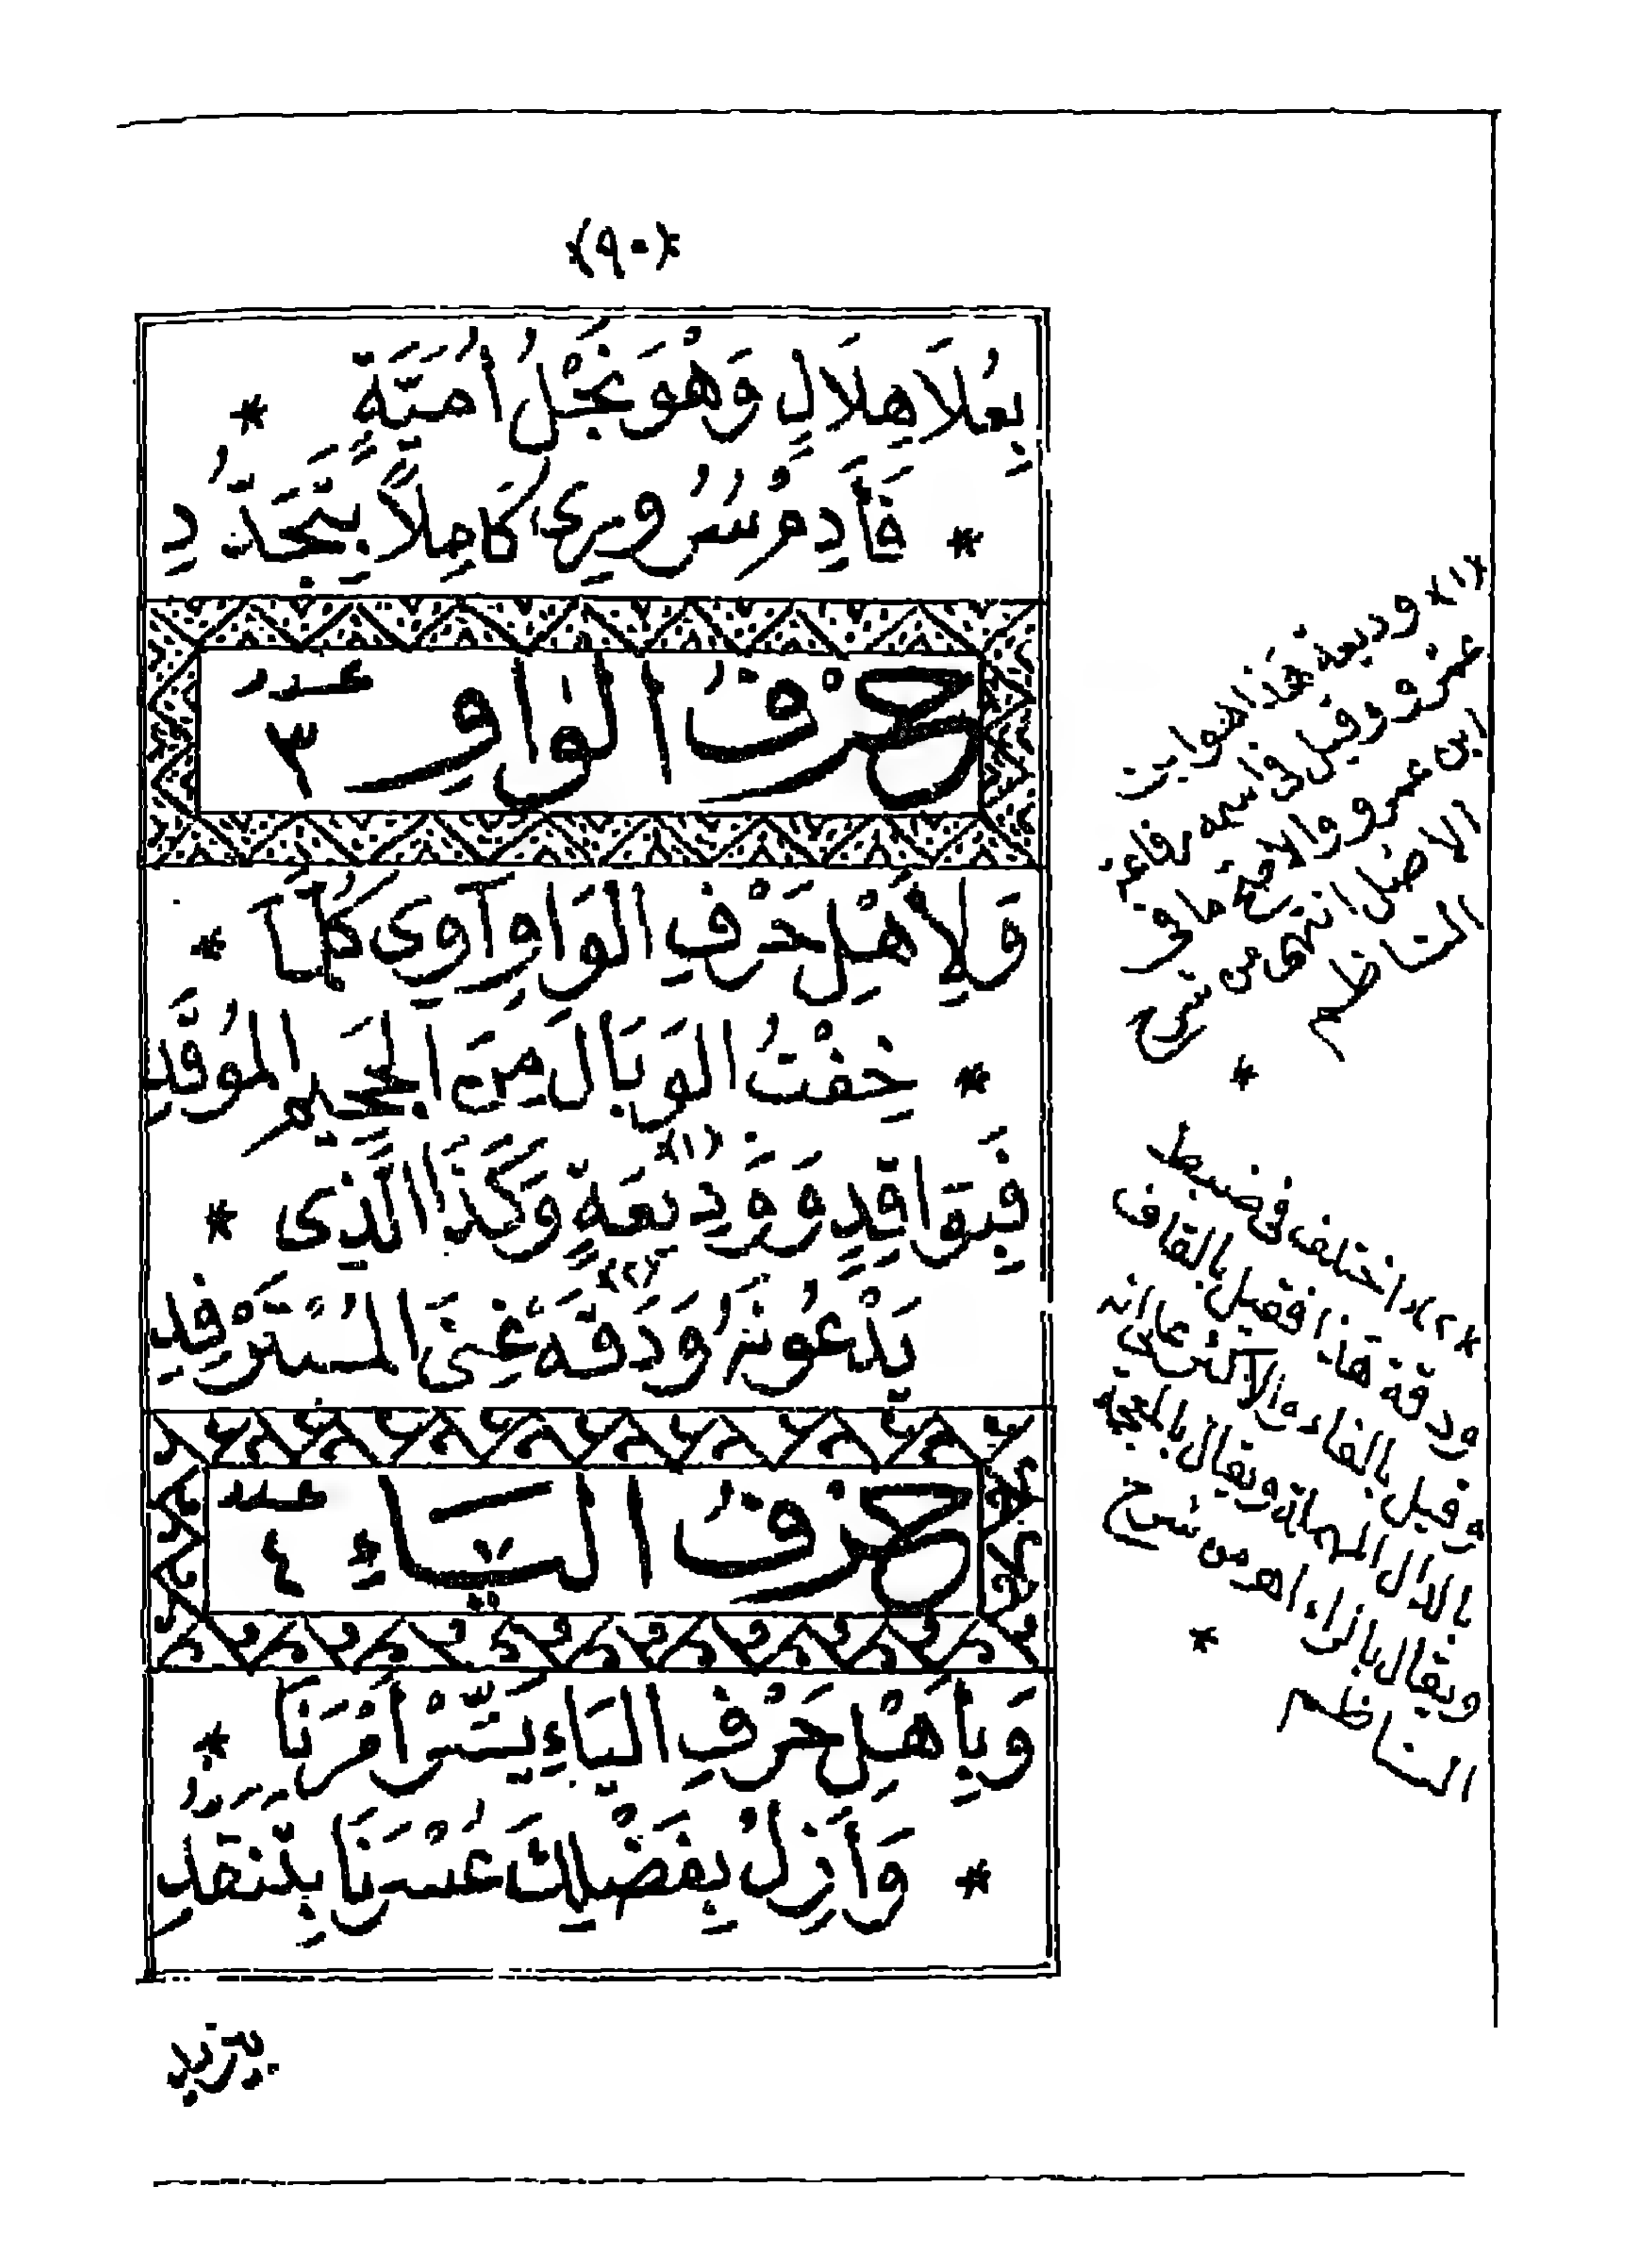 ﴿٩٠﴾
بِعُلَا هِلَالٍ وَهْوَ نَجْلُ أُمَيَّةٍ *
* فَأَدِمْ سُرُورِي كَامِلًا بِتَجَدُّدِ
حرف الواو عدد ٣
وَلِأَهْلِ حَرْفِ الوَاوِ آوِي كُلَّمَا *
* خِفْتُ الوَبَالَ مِنَ الجَحِيمِ المُوقَدِ
فَبِوَاقِدٍ وَوَدِيعَةٍ (١) وَكَذَا الَّذِي *
يَدْعُونَهُ وَدَقَةَ (٢) غِنَى المُسْتَرْفِدِ
حرف الياء عدد ٤
وَبِأَهْلِ حَرْفِ اليَاءِ يَسِّرْ أَمْرَنَا *
* وَأَزِلْ بِفَضْلِكَ عُسْرَنَا يَا سَيِّدِي
(١) وديعة هذا هو ابن
عمرو وقيل في اسمه رفاعة
ابن عمرو والاصح ما في
الاصل انتهى من شرح
الناظم
*
(٢) اختلف في ضبط
ودقة هذا فقيل بالقاف
وقيل بالفاء والاكثر على انه
بالدال المهملة ويقال بالمعجمة
ويقال بالراء اهـ من شرح
الناظم
*
بيزيد